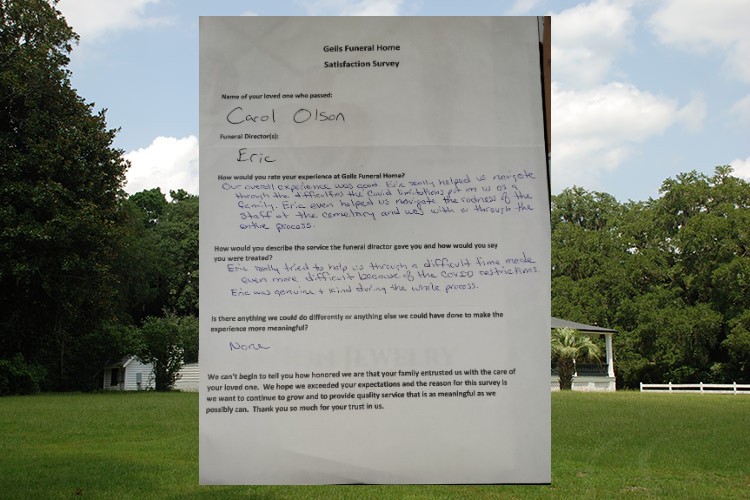 Geils Funeral Home
Satisfaction Survey
Name of your loved one who passed:
Carol Olson
Funeral Director(s):
Eric
How would you rate your experience at Geils Funeral Home?
Our overall experience was good. Eric really helped us navigate
through the difficulties the Covid limitations put on us as a
family. Eric even helped us navigate the rudeness of the
staff at the cemetary and was with us through the
entire process.
How would you describe the service the funeral director gave you and how would you say
you were treated?
Eric really tried to help us through a difficult time made
even more difficult because of the COVID restrictions.
Eric was genuine + kind during the whole process.
Is there anything we could do differently or anything else we could have done to make the
experience more meaningful?
None
We can't begin to tell you how honored we are that your family entrusted us with the care of
your loved one. We hope we exceeded your expectations and the reason for this survey is
we want to continue to grow and to provide quality service that is as meaningful as we
possibly can. Thank you so much for your trust in us.